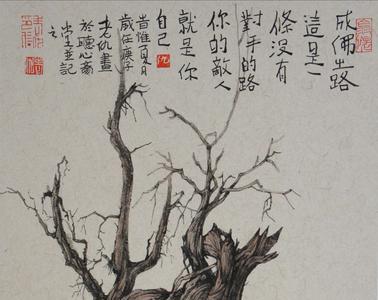 成佛之路
這是一
條沒有
對手的路
你的敵人
就是你
自己
旹惟夏日
歲在庚子
老仇畫
於聽心齋
並記
之